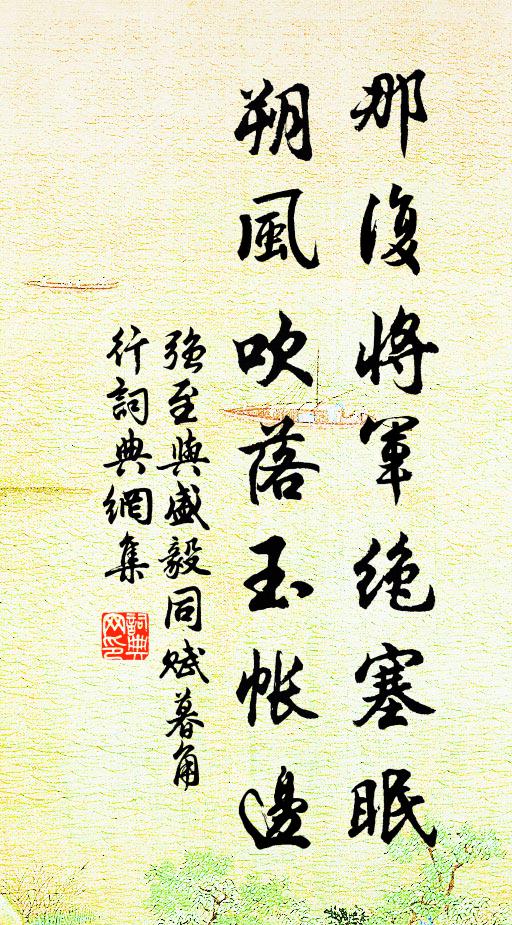 那復將軍絶塞眠
朔風吹落玉帳邊
強至與盛毅同賦暮角
行詞典網集
詞典网印